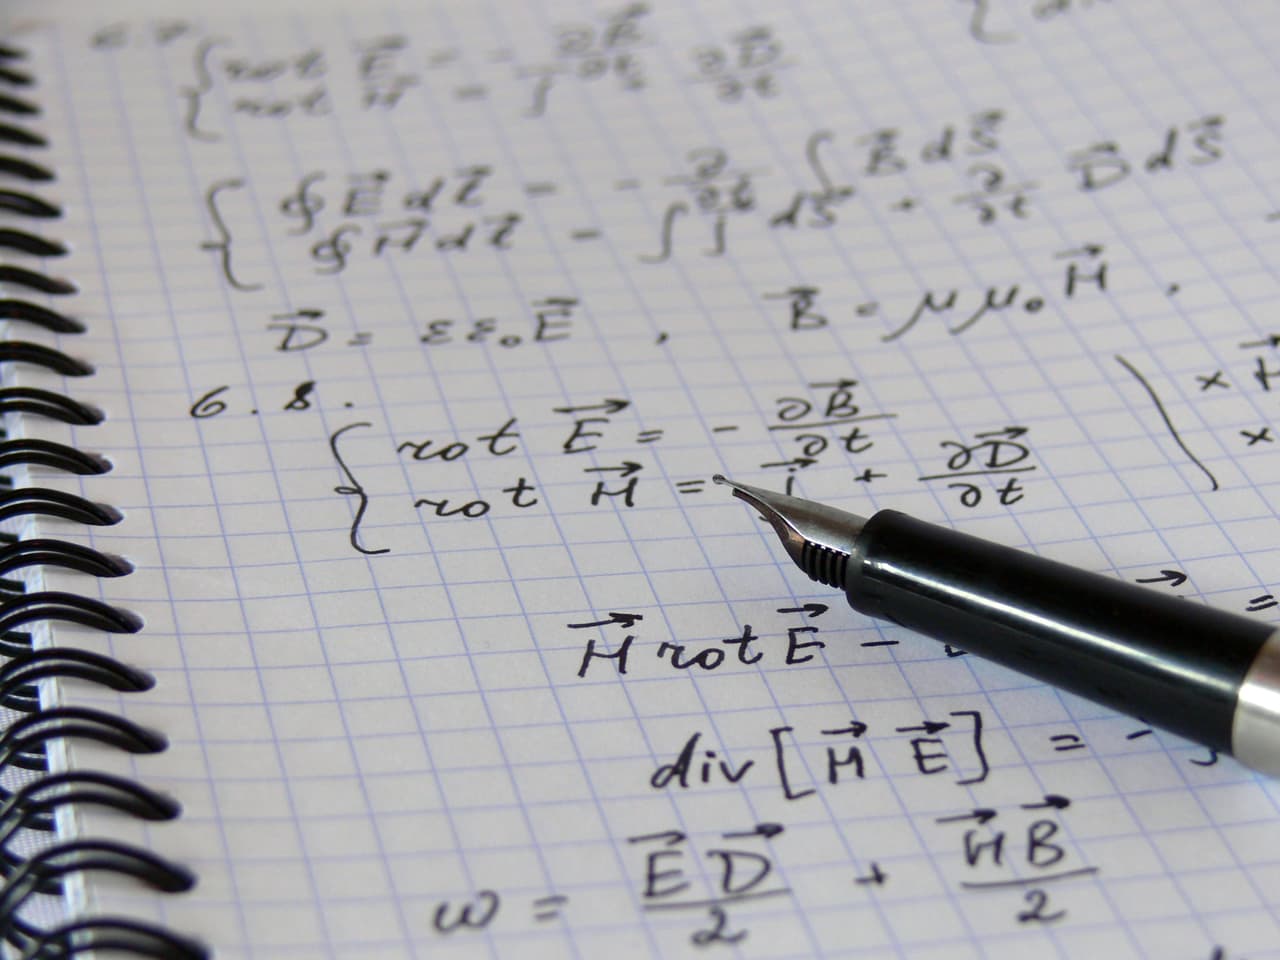 6.7.
{ rot E⃗ = - ∂B⃗/∂t
rot H⃗ = j⃗ + ∂D⃗/∂t
{ ∮ E⃗ dl⃗ = - ∂/∂t ∫ B⃗ dS⃗
∮ H⃗ dl⃗ = ∫ j⃗ dS⃗ + ∂/∂t D⃗ dS⃗
D⃗ = εε₀E⃗ , B⃗ = μμ₀H⃗ .
6.8.
{ rot E⃗ = - ∂B⃗/∂t | × H⃗
rot H⃗ = j⃗ + ∂D⃗/∂t | ×
H⃗ rot E⃗ - =
div [H⃗ E⃗] = -
w = E⃗D⃗/2 + H⃗B⃗/2